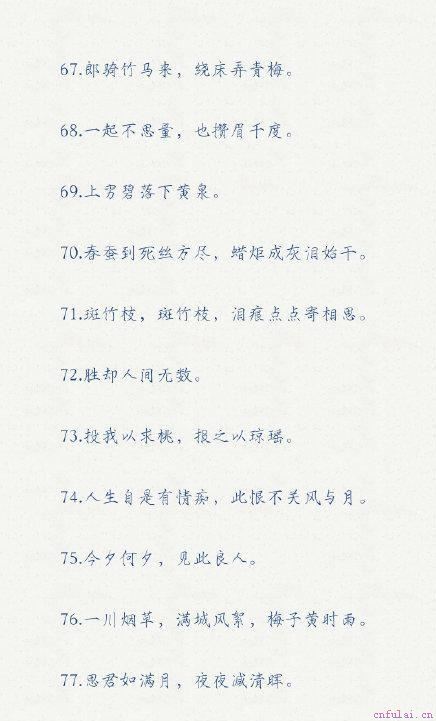 67.郎骑竹马来，绕床弄青梅。
68.一起不思量，也攒眉千度。
69.上穷碧落下黄泉。
70.春蚕到死丝方尽，蜡炬成灰泪始干。
71.斑竹枝，斑竹枝，泪痕点点寄相思。
72.胜却人间无数。
73.投我以木桃，报之以琼瑶。
74.人生自是有情痴，此恨不关风与月。
75.今夕何夕，见此良人。
76.一川烟草，满城风絮，梅子黄时雨。
77.思君如满月，夜夜减清晖。
cnfulai.cn